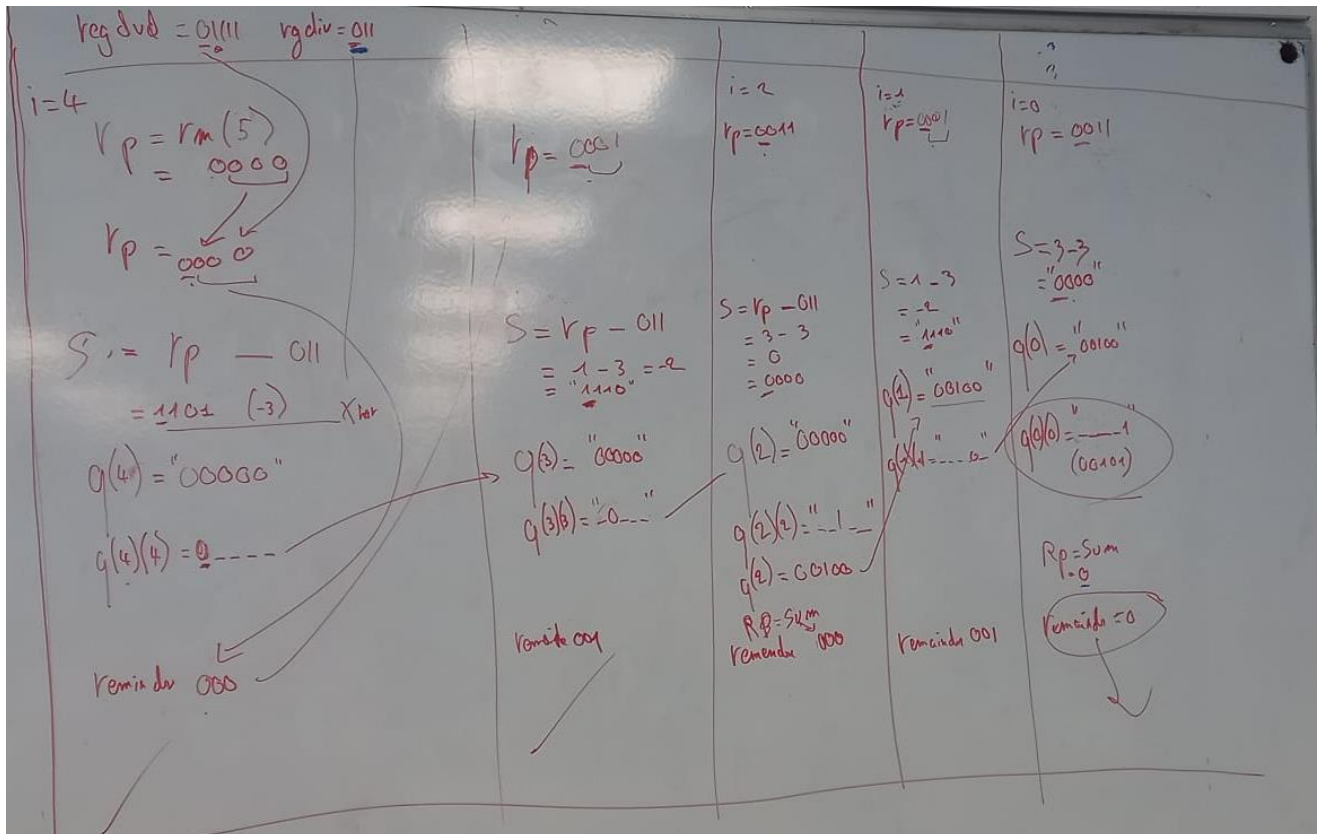 reg dvd = 01111 rg div = 011
i=4
rp = rm(5)
= 0000
rp = 000 0
S := rp - 011
= 1101 (-3)
q(4) = "00000"
q(4)(4) = 0----
remindr 000
rp = 0001
S = rp - 011
= 1-3 = -2
= "1110"
q(3) = "00000"
q(3)(3) = "-0---"
001
i=2
rp=0011
S=rp-011
= 3-3
= 0
= 0000
q(2)="00000"
q(2)(2)="--1--"
q(2)=00100
Rp=Sum
remendr 000
i=1
rp=0001
S=1-3
= -2
= "1110"
q(1)="00100"
remaindr 001
i=0
rp = 0011
S=3-3
="0000"
q(0)="00100"
q(0)(0)="----1"
(00101)
Rp=Sum
=0
remaindr =0